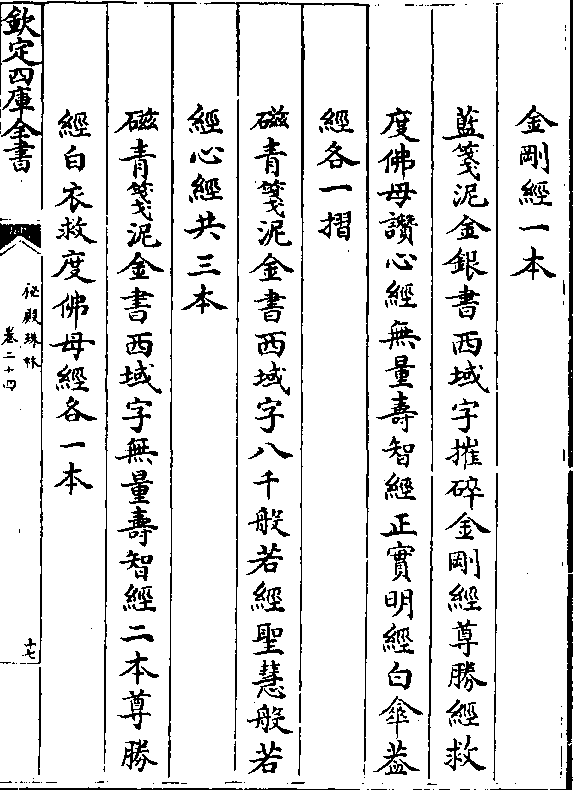 金剛經一本
藍箋泥金銀書西域字摧碎金剛經尊勝經救
度佛母讚心經無量壽智經正實明經白傘葢
經各一摺
磁青箋泥金書西域字八千般若經聖慧般若
經心經共三本
磁青箋泥金書西域字無量壽智經二本尊勝
經白衣救度佛母經各一本
欽定四庫全書
秘殿珠林
卷二十四
十七